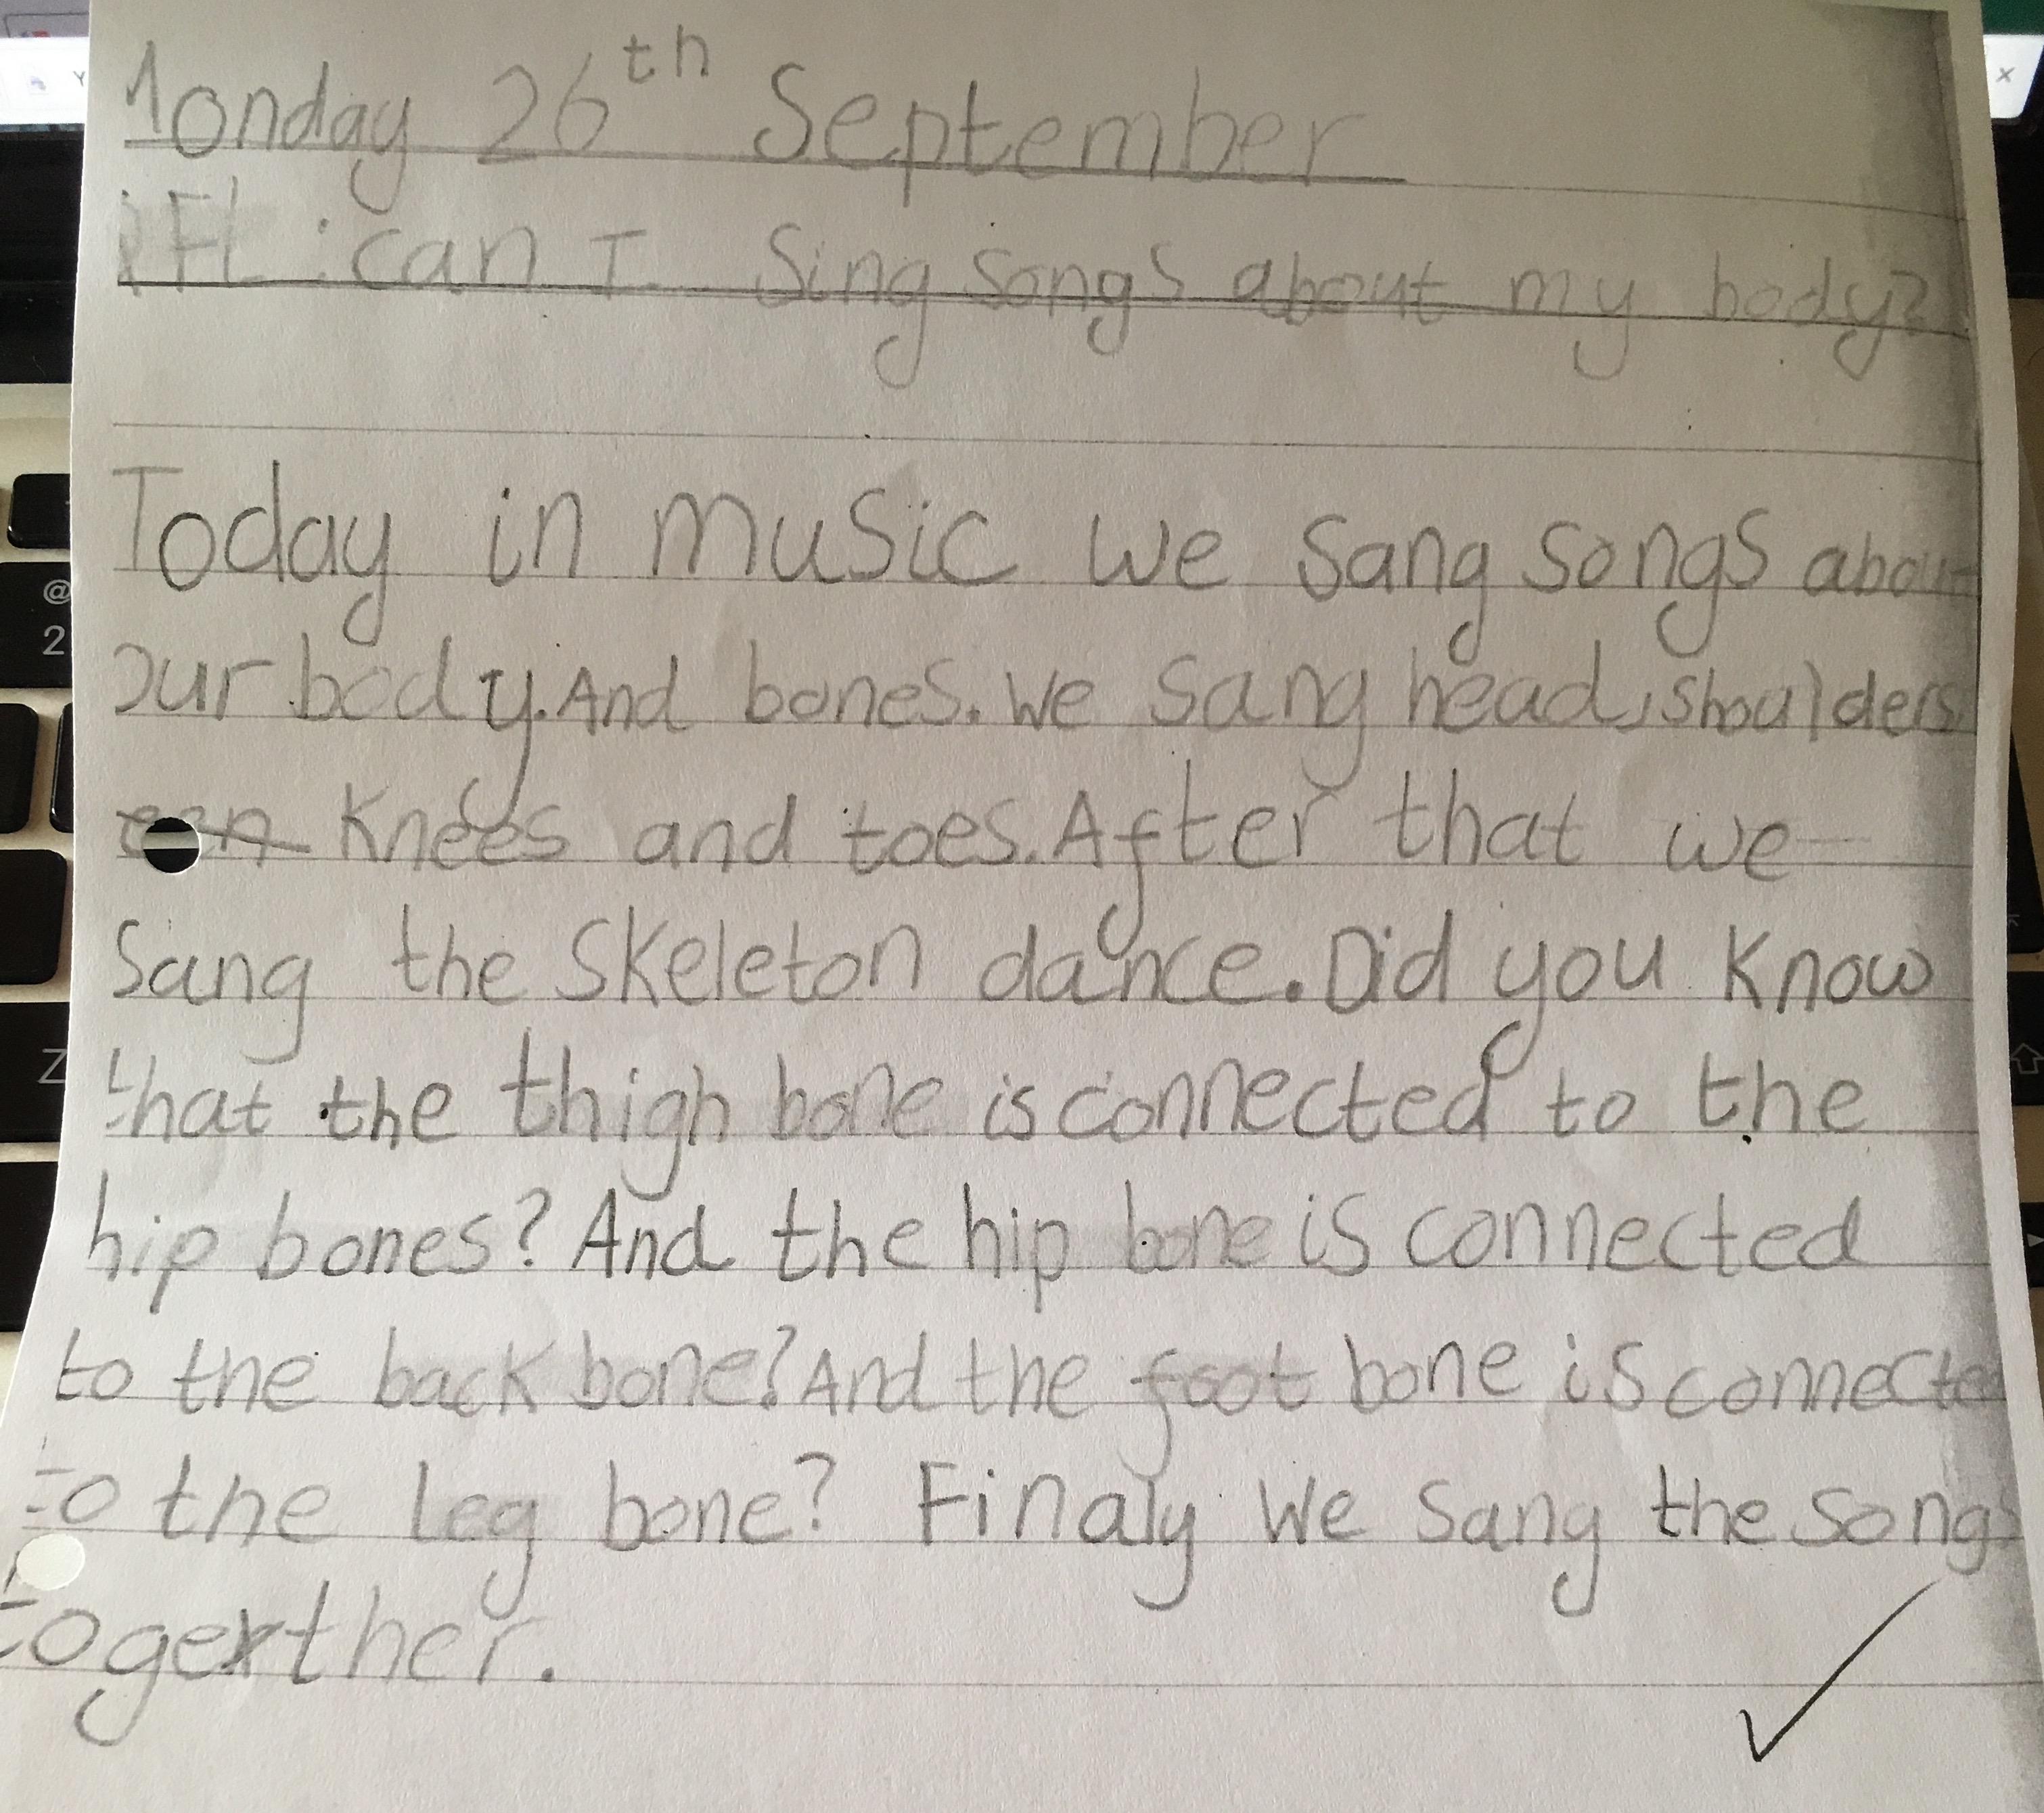 Monday 26th September
iFL: can I Sing songs about my body?
Today in music we sang songs about
our body. And bones. We sang head, shoulders
Knees and toes. After that we
Sang the skeleton dance. Did you know
that the thigh bone is connected to the
hip bones? And the hip bone is connected
to the back bone? And the foot bone is connected
to the leg bone? Finaly we sang the songs
together.
@
2
Z
Y